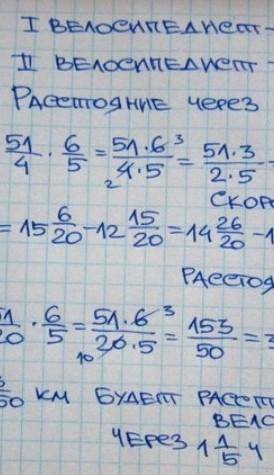 I ВЕЛОСИПЕДИСТ-
II ВЕЛОСИПЕДИСТ-
РАССТОЯНИЕ ЧЕРЕЗ
51/4 · 6/5 = 51·6³/₂4·5 = 51·3/2·5
СКОРО
= 15 6/20 - 12 15/20 = 14 26/20 - 1
РАССТОЯ
51/20 · 6/5 = 51·6³/₁₀20·5 = 153/50 = 3
/50 КМ БУДЕТ РАССТ
ВЕЛО
ЧЕРЕЗ 1 1/5 Ч